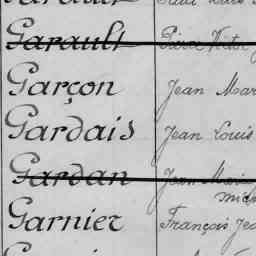 Garault
Garçon Jean Mar
Gardais Jean Louis
Gardan Jean Marie
Garnier François Jea